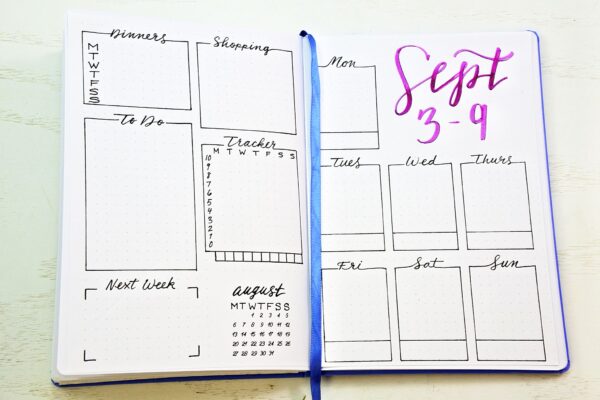 Dinners
M
T
W
T
F
S
S
Shopping
To Do
Tracker
M T W T F S S
10
9
8
7
6
5
4
3
2
1
0
Next Week
august
M T W T F S S
1 2 3 4 5
6 7 8 9 10 11 12
13 14 15 16 17 18 19
20 21 22 23 24 25 26
27 28 29 30 31
Mon
Sept
3-9
Tues
Wed
Thurs
Fri
Sat
Sun